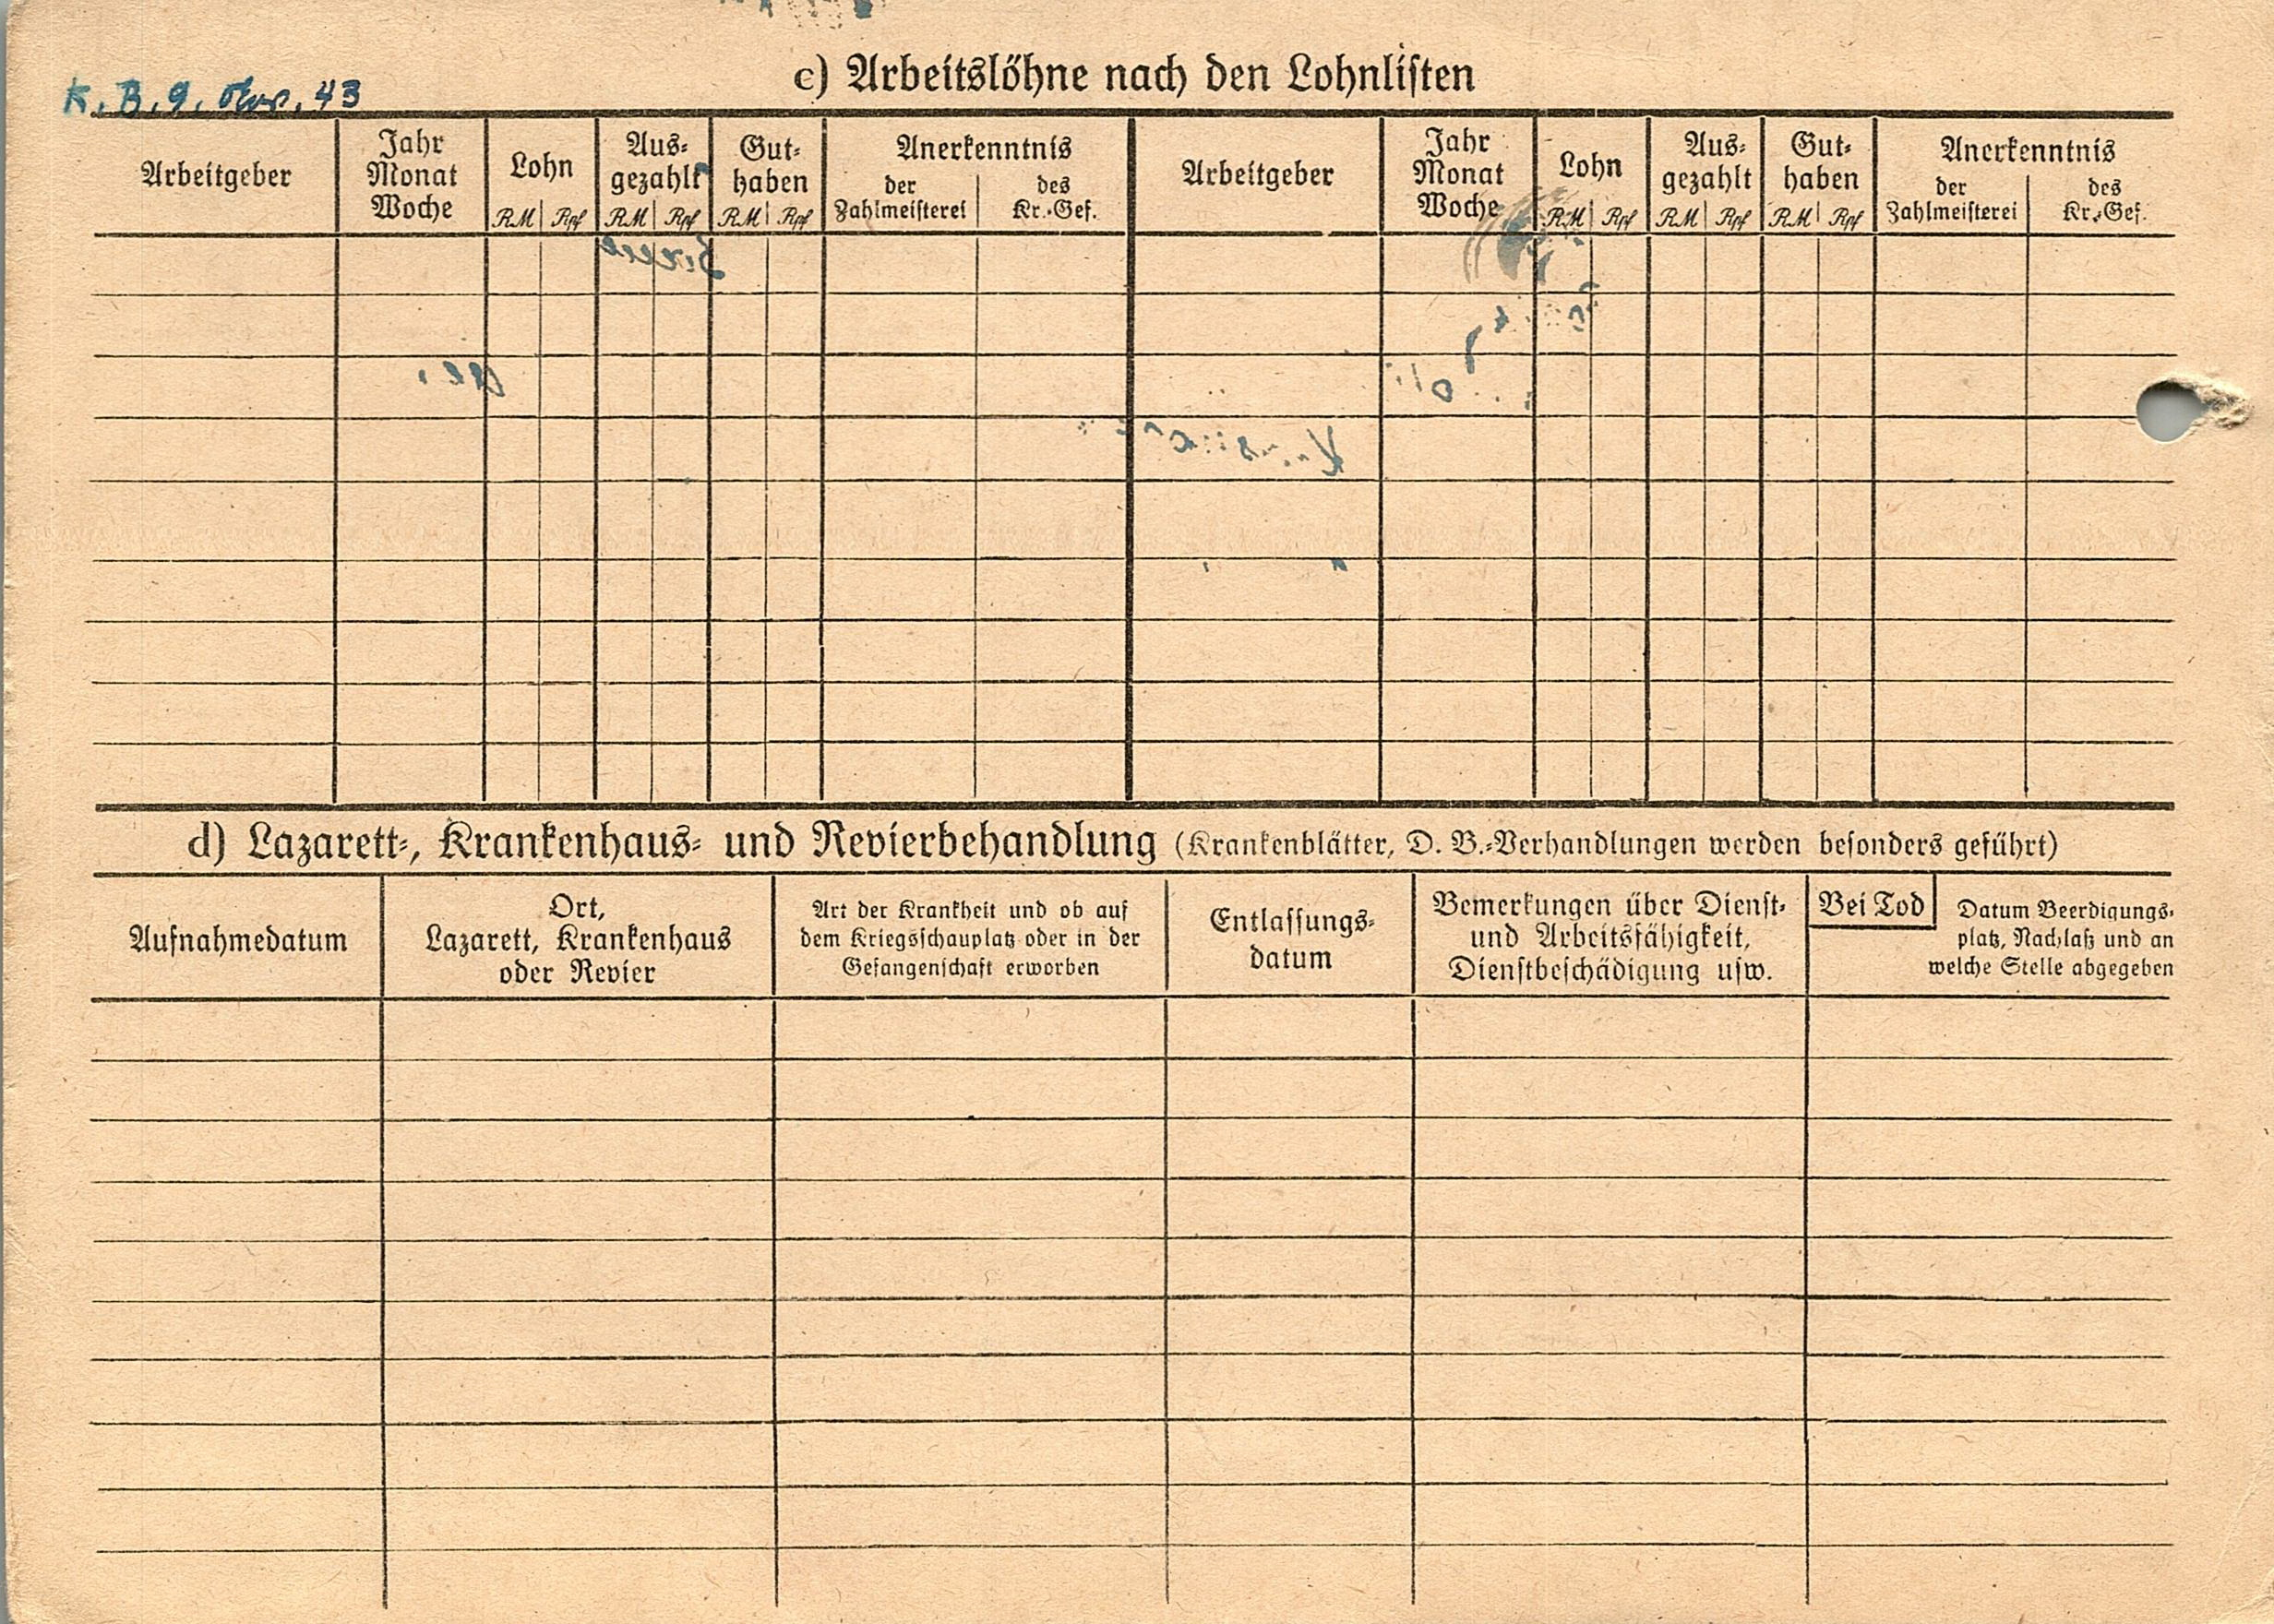 K. B. 9. Nov. 43
c) Arbeitslöhne nach den Lohnlisten
Arbeitgeber
Jahr
Monat
Woche
Lohn
RM Rpf
Aus-
gezahlt
RM Rpf
Gut-
haben
RM Rpf
Anerkenntnis
der
Zahlmeisterei
des
Kr.-Gef.
Arbeitgeber
Jahr
Monat
Woche
Lohn
RM Rpf
Aus-
gezahlt
RM Rpf
Gut-
haben
RM Rpf
Anerkenntnis
der
Zahlmeisterei
des
Kr.-Gef.
d) Lazarett-, Krankenhaus- und Revierbehandlung (Krankenblätter, D. B.-Verhandlungen werden besonders geführt)
Aufnahmedatum
Ort,
Lazarett, Krankenhaus
oder Revier
Art der Krankheit und ob auf
dem Kriegsschauplatz oder in der
Gefangenschaft erworben
Entlassungs-
datum
Bemerkungen über Dienst-
und Arbeitsfähigkeit,
Dienstbeschädigung usw.
Bei Tod
Datum Beerdigungs-
platz, Nachlaß und an
welche Stelle abgegeben